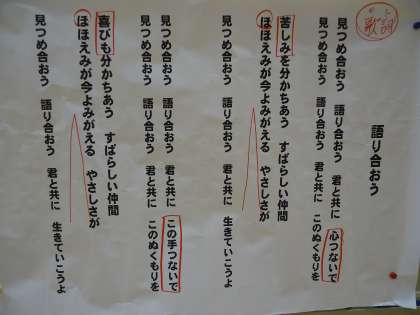 かし
歌詞
語り合おう
見つめ合おう 語り合おう 君と共に 心つないで
見つめ合おう 語り合おう 君と共に このぬくもりを
苦しみを分かちあう すばらしい仲間
ほほえみが今よみがえる やさしさが
見つめ合おう 語り合おう 君と共に 生きていこうよ
見つめ合おう 語り合おう 君と共に この手つないで
見つめ合おう 語り合おう 君と共に このぬくもりを
喜びも分かちあう すばらしい仲間
ほほえみが今よみがえる やさしさが
見つめ合おう 語り合おう 君と共に 生きていこうよ